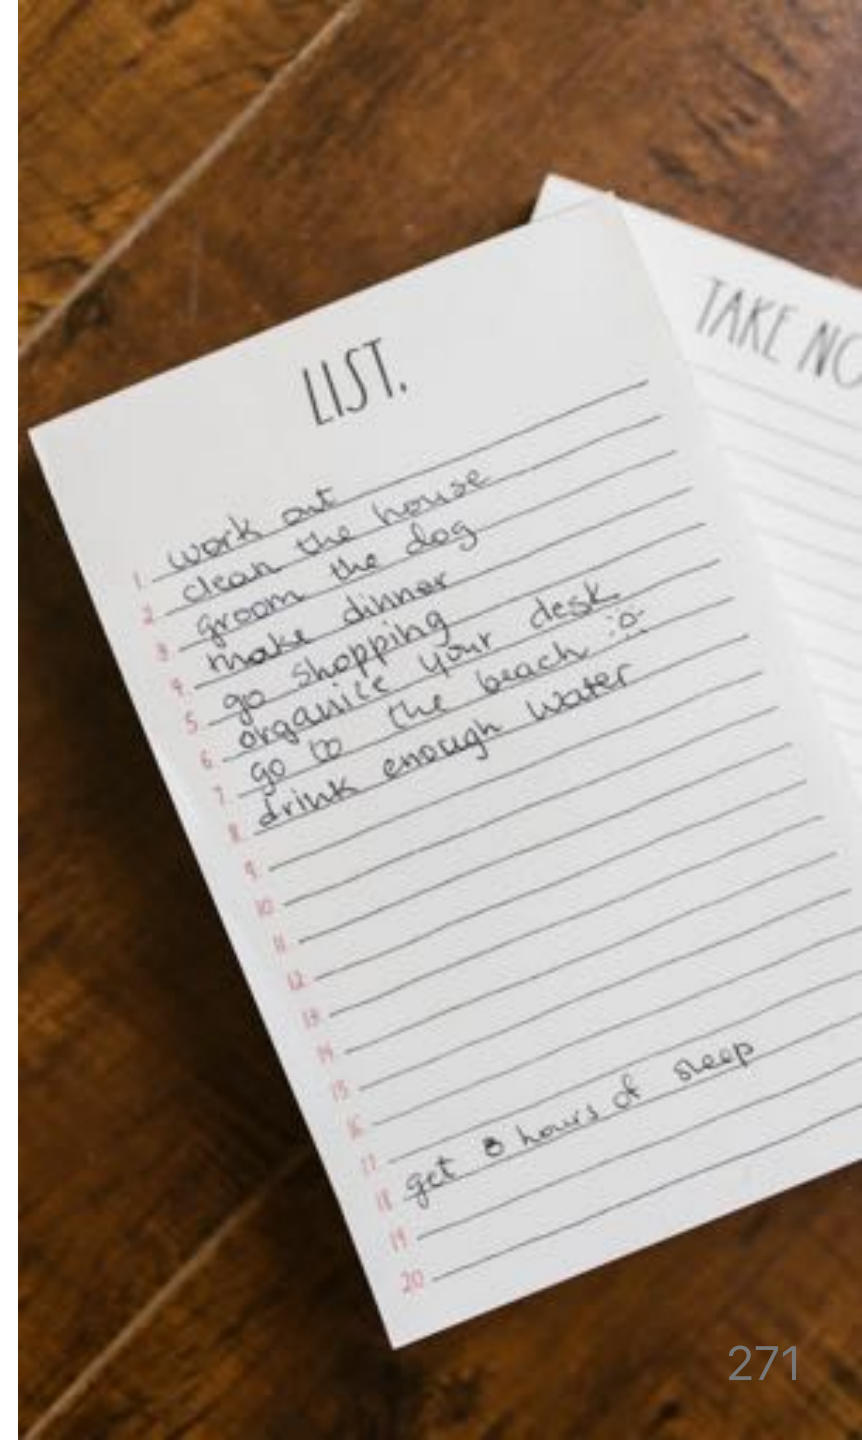 LIST.
TAKE NO
1. work out
2. clean the house
3. groom the dog
4. make dinner
5. go shopping
6. organice your desk
7. go to the beach
8. drink enough water
9.
10.
11.
12.
13.
14.
15.
16.
17.
18. get 8 hours of sleep
19.
20.
271